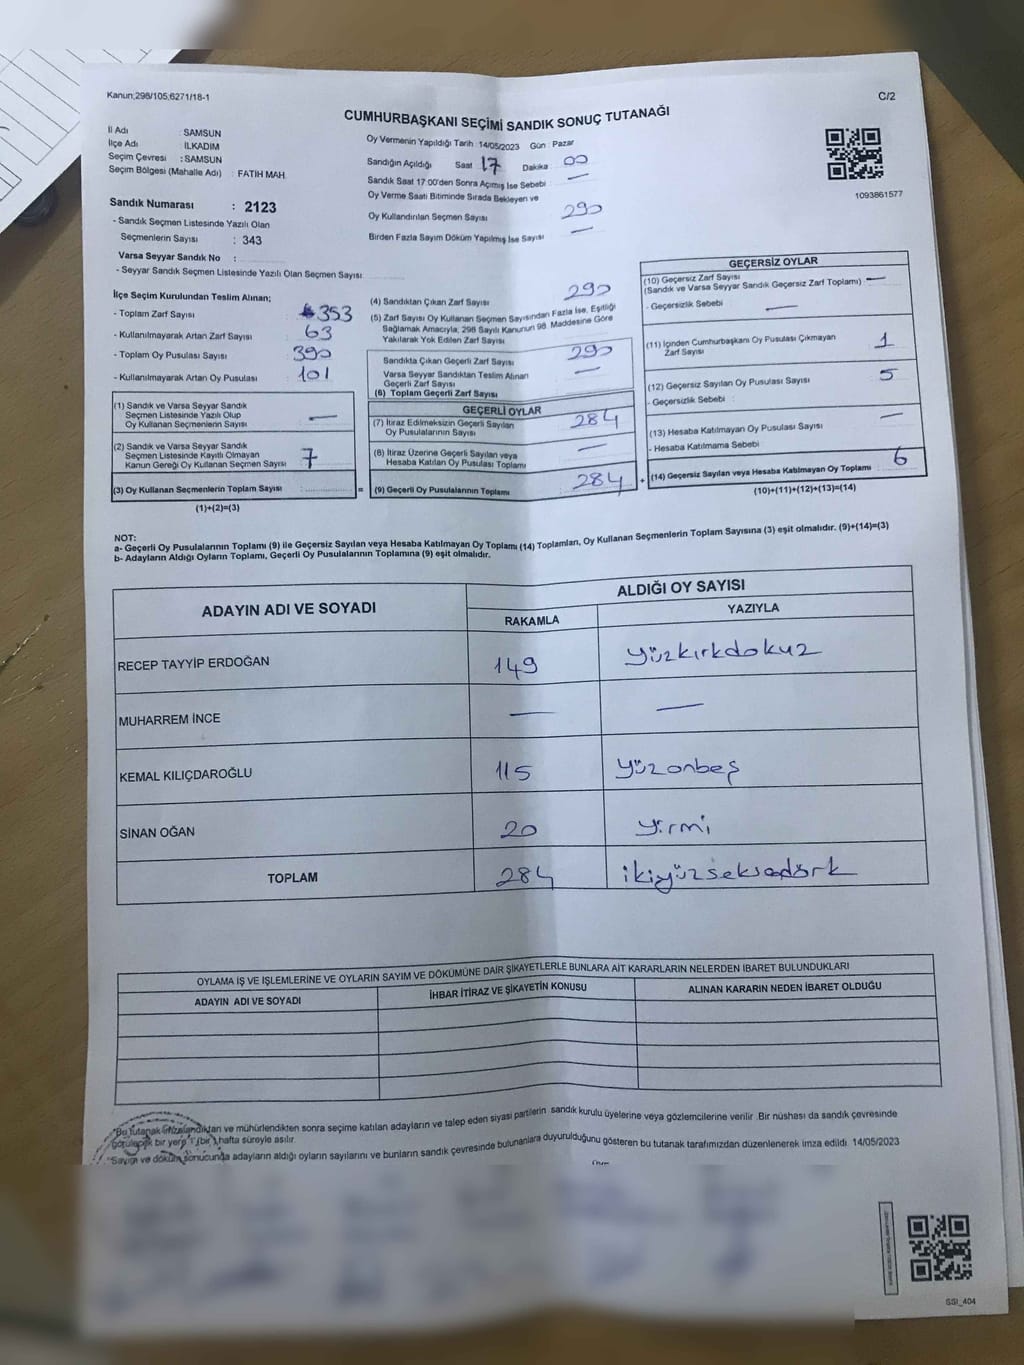 Kanun;298/105;6271/18-1
C/2
CUMHURBAŞKANI SEÇİMİ SANDIK SONUÇ TUTANAĞI
İl Adı : SAMSUN
İlçe Adı : İLKADIM
Seçim Çevresi : SAMSUN
Seçim Bölgesi (Mahalle Adı) : FATİH MAH.
Oy Vermenin Yapıldığı Tarih 14/05/2023 Gün : Pazar
Sandığın Açıldığı Saat 17 Dakika 00
Sandık Saat 17:00'den Sonra Açımış İse Sebebi : —
Oy Verme Saati Bitiminde Sırada Bekleyen ve
Oy Kullandırılan Seçmen Sayısı 290
Birden Fazla Sayım Döküm Yapılmış İse Sayısı —
1093861577
Sandık Numarası : 2123
- Sandık Seçmen Listesinde Yazılı Olan
Seçmenlerin Sayısı : 343
Varsa Seyyar Sandık No :
- Seyyar Sandık Seçmen Listesinde Yazılı Olan Seçmen Sayısı
İlçe Seçim Kurulundan Teslim Alınan;
- Toplam Zarf Sayısı 353
- Kullanılmayarak Artan Zarf Sayısı 63
- Toplam Oy Pusulası Sayısı 390
- Kullanılmayarak Artan Oy Pusulası 101
(1) Sandık ve Varsa Seyyar Sandık
Seçmen Listesinde Yazılı Olup
Oy Kullanan Seçmenlerin Sayısı —
(2) Sandık ve Varsa Seyyar Sandık
Seçmen Listesinde Kayıtlı Olmayan
Kanun Gereği Oy Kullanan Seçmen Sayısı 7
(3) Oy Kullanan Seçmenlerin Toplam Sayısı =
(1)+(2)=(3)
(4) Sandıktan Çıkan Zarf Sayısı 290
(5) Zarf Sayısı Oy Kullanan Seçmen Sayısından Fazla İse, Eşitliği
Sağlamak Amacıyla, 298 Sayılı Kanunun 98. Maddesine Göre
Yakılarak Yok Edilen Zarf Sayısı
Sandıkta Çıkan Geçerli Zarf Sayısı 290
Varsa Seyyar Sandıktan Teslim Alınan
Geçerli Zarf Sayısı —
(6) Toplam Geçerli Zarf Sayısı
GEÇERLİ OYLAR
(7) İtiraz Edilmeksizin Geçerli Sayılan
Oy Pusulalarının Sayısı 284
(8) İtiraz Üzerine Geçerli Sayılan veya
Hesaba Katılan Oy Pusulası Toplamı —
(9) Geçerli Oy Pusulalarının Toplamı 284 +
GEÇERSİZ OYLAR
(10) Geçersiz Zarf Sayısı
(Sandık ve Varsa Seyyar Sandık Geçersiz Zarf Toplamı) —
- Geçersizlik Sebebi : —
(11) İçinden Cumhurbaşkanı Oy Pusulası Çıkmayan
Zarf Sayısı 1
(12) Geçersiz Sayılan Oy Pusulası Sayısı 5
- Geçersizlik Sebebi :
(13) Hesaba Katılmayan Oy Pusulası Sayısı —
- Hesaba Katılmama Sebebi
(14) Geçersiz Sayılan veya Hesaba Katılmayan Oy Toplamı 6
(10)+(11)+(12)+(13)=(14)
NOT:
a- Geçerli Oy Pusulalarının Toplamı (9) ile Geçersiz Sayılan veya Hesaba Katılmayan Oy Toplamı (14) Toplamları, Oy Kullanan Seçmenlerin Toplam Sayısına (3) eşit olmalıdır. (9)+(14)=(3)
b- Adayların Aldığı Oyların Toplamı, Geçerli Oy Pusulalarının Toplamına (9) eşit olmalıdır.
ADAYIN ADI VE SOYADI ALDIĞI OY SAYISI
RAKAMLA YAZIYLA
RECEP TAYYİP ERDOĞAN 149 yüzkırkdokuz
MUHARREM İNCE — —
KEMAL KILIÇDAROĞLU 115 yüzonbeş
SİNAN OĞAN 20 yirmi
TOPLAM 284 ikiyüzseksedört
OYLAMA İŞ VE İŞLEMLERİNE VE OYLARIN SAYIM VE DÖKÜMÜNE DAİR ŞİKAYETLERLE BUNLARA AİT KARARLARIN NELERDEN İBARET BULUNDUKLARI
ADAYIN ADI VE SOYADI İHBAR İTİRAZ VE ŞİKAYETİN KONUSU ALINAN KARARIN NEDEN İBARET OLDUĞU
"Bu tutanak imzalandıktan ve mühürlendikten sonra seçime katılan adayların ve talep eden siyasi partilerin sandık kurulu üyelerine veya gözlemcilerine verilir. Bir nüshası da sandık çevresinde
görülebilir bir yere 1 (bir) hafta süreyle asılır.
"Sayım ve döküm sonucunda adayların aldığı oyların sayılarını ve bunların sandık çevresinde bulunanlara duyurulduğunu gösteren bu tutanak tarafımızdan düzenlenerek imza edildi. 14/05/2023
SSI_404